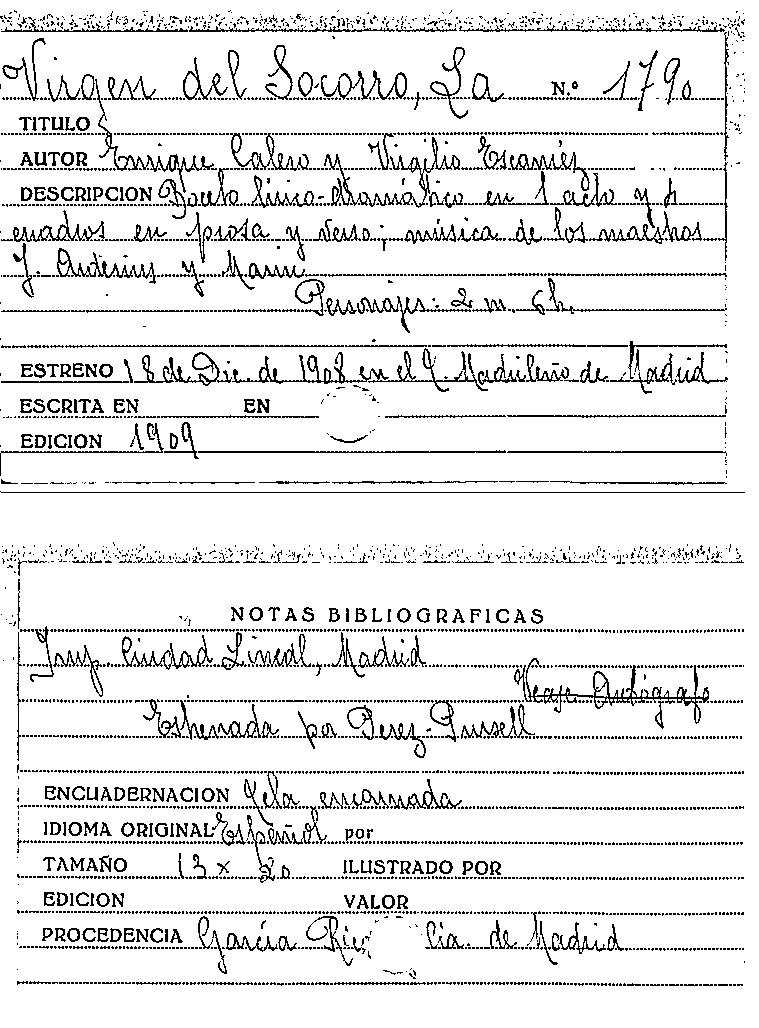 Virgen del Socorro, La N.º 1790
TITULO
AUTOR Enrique Calero y Virgilio Escamez
DESCRIPCION Boceto lírico-dramático en 1 acto y
cuadros en prosa y verso; música de los maestros
J. y Marin
Personajes: 2 m. 6 h.
ESTRENO 18 de Dic. de 1908 en el T. Madrileño de Madrid
ESCRITA EN EN
EDICION 1909
NOTAS BIBLIOGRAFICAS
Imp. Ciudad Lineal, Madrid
Vease Autógrafo
Estrenada por Perez-
ENCUADERNACION Tela encarnada
IDIOMA ORIGINAL Español por
TAMAÑO 13 x 20 ILUSTRADO POR
EDICION VALOR
PROCEDENCIA García Cia. de Madrid